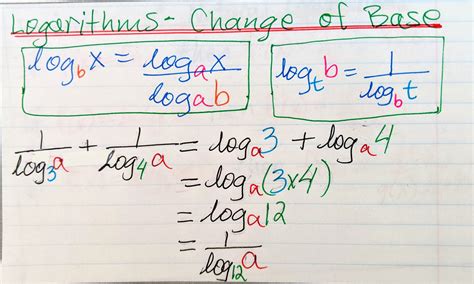 Logarithms - Change of Base
log_b x = log_a x / log_a b
log_t b = 1 / log_b t
1/log_3 a + 1/log_4 a = log_a 3 + log_a 4
= log_a (3x4)
= log_a 12
= 1/log_12 a